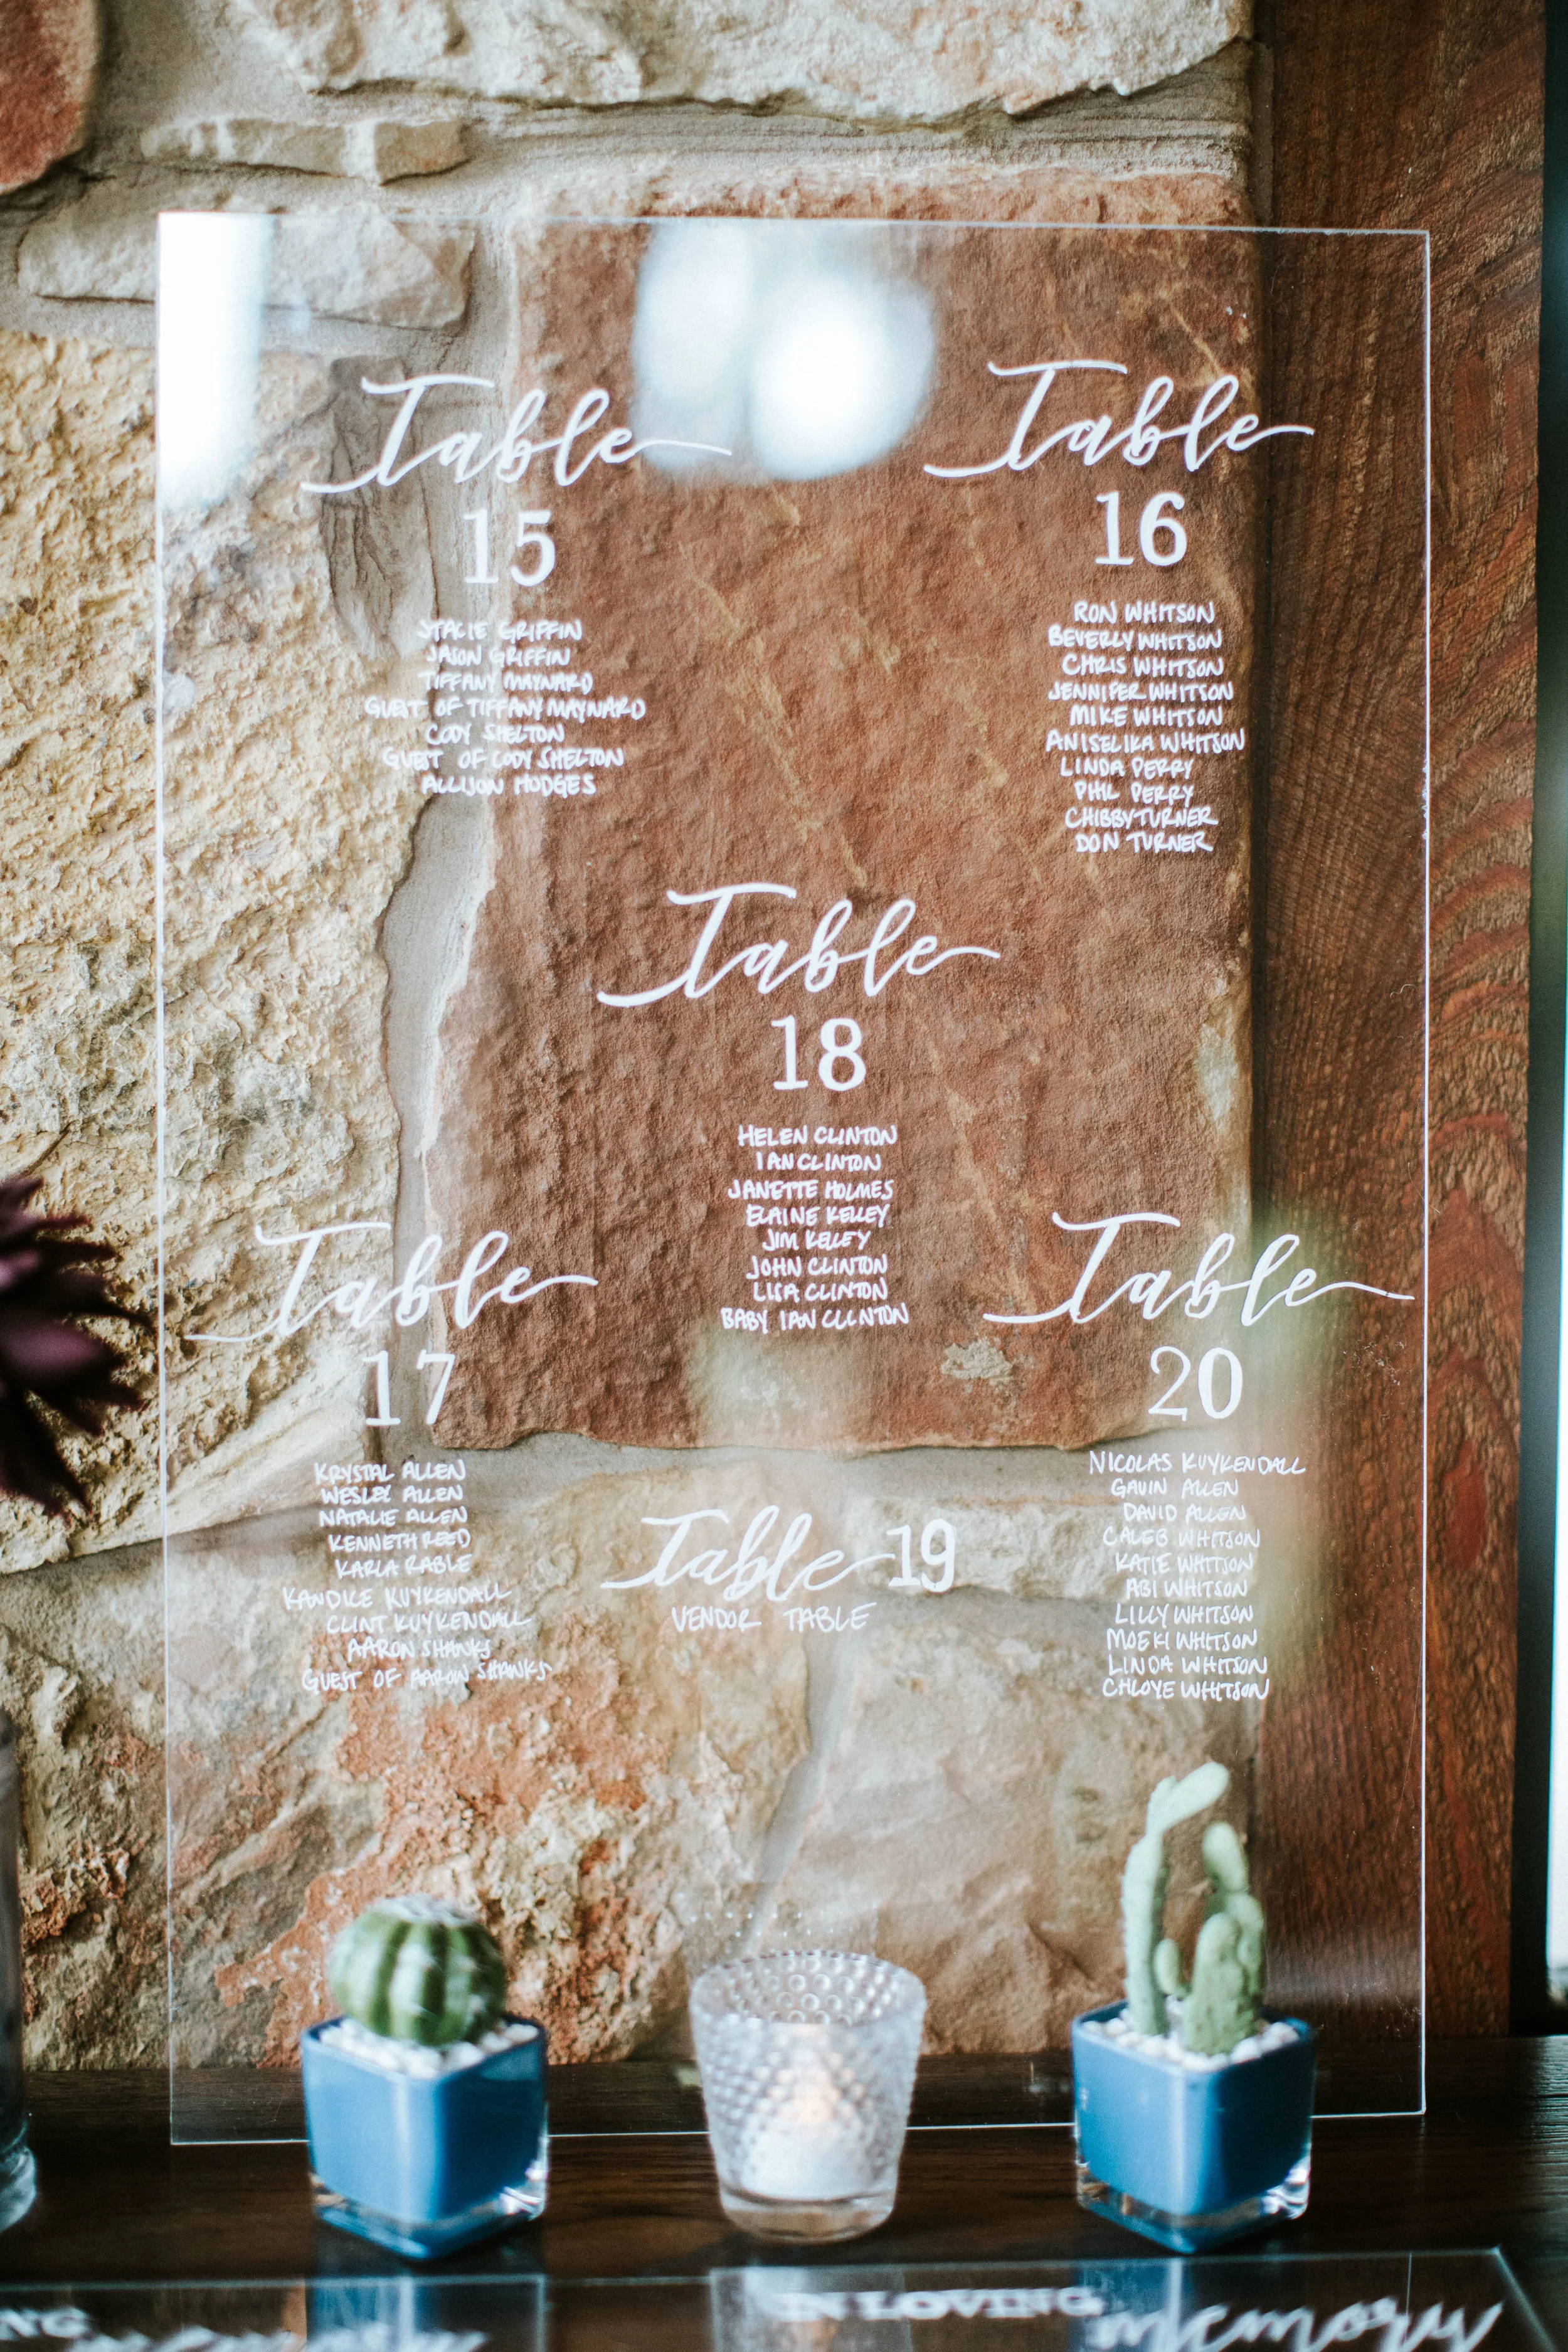 Table
15
STACIE GRIFFIN
JASON GRIFFIN
TIFFANY MAYNARD
GUEST OF TIFFANY MAYNARD
CODY SHELTON
GUEST OF CODY SHELTON
ALLISON HODGES
Table
16
RON WHITSON
BEVERLY WHITSON
CHRIS WHITSON
JENNIFER WHITSON
MIKE WHITSON
ANISELIKA WHITSON
LINDA PERRY
PHIL PERRY
CHIBBY TURNER
DON TURNER
Table
18
HELEN CLINTON
IAN CLINTON
JANETTE HOLMES
ELAINE KELLEY
JIM KELLEY
JOHN CLINTON
LISA CLINTON
BABY IAN CLINTON
Table
17
KRYSTAL ALLEN
WESLEY ALLEN
NATALIE ALLEN
KENNETH REED
KARLA RABLE
KANDICE KUYKENDALL
CLINT KUYKENDALL
AARON SHANKS
GUEST OF AARON SHANKS
Table 19
VENDOR TABLE
Table
20
NICOLAS KUYKENDALL
GAVIN ALLEN
DAVID ALLEN
CALEB WHITSON
KATIE WHITSON
ABI WHITSON
LILLY WHITSON
MOEKI WHITSON
LINDA WHITSON
CHLOYE WHITSON
IN LOVING
memory